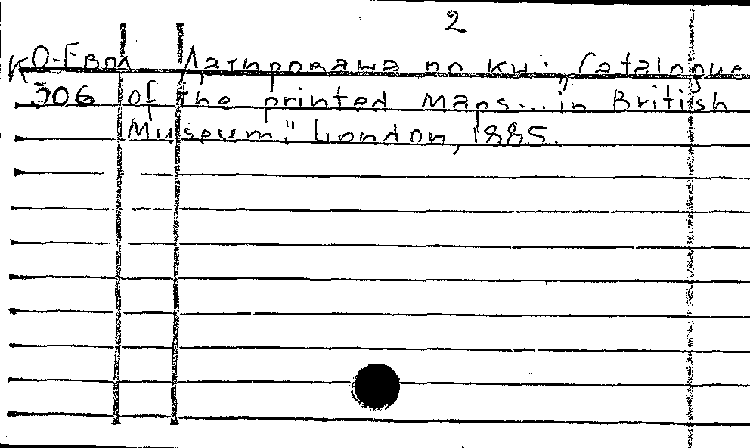 2
КО-Евр Датирована по кн.: „Catalogue
306 of the printed maps... in British
Museum." London, 1885.